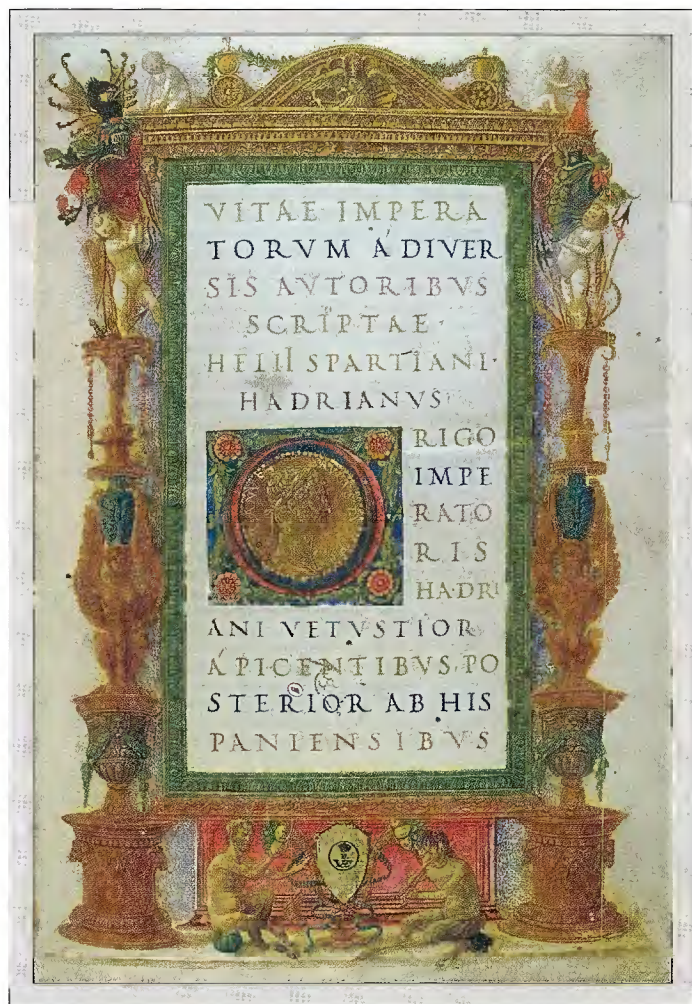 VITAE IMPERA
TORVM A DIVER
SIS AVTORIBVS
SCRIPTAE·
HELII SPARTIANI·
HADRIANVS
RIGO
IMPE
RATO
RIS
HADRI
ANI VETVSTIOR
A PICENTIBVS PO
STERIOR AB HIS
PANIENSIBVS